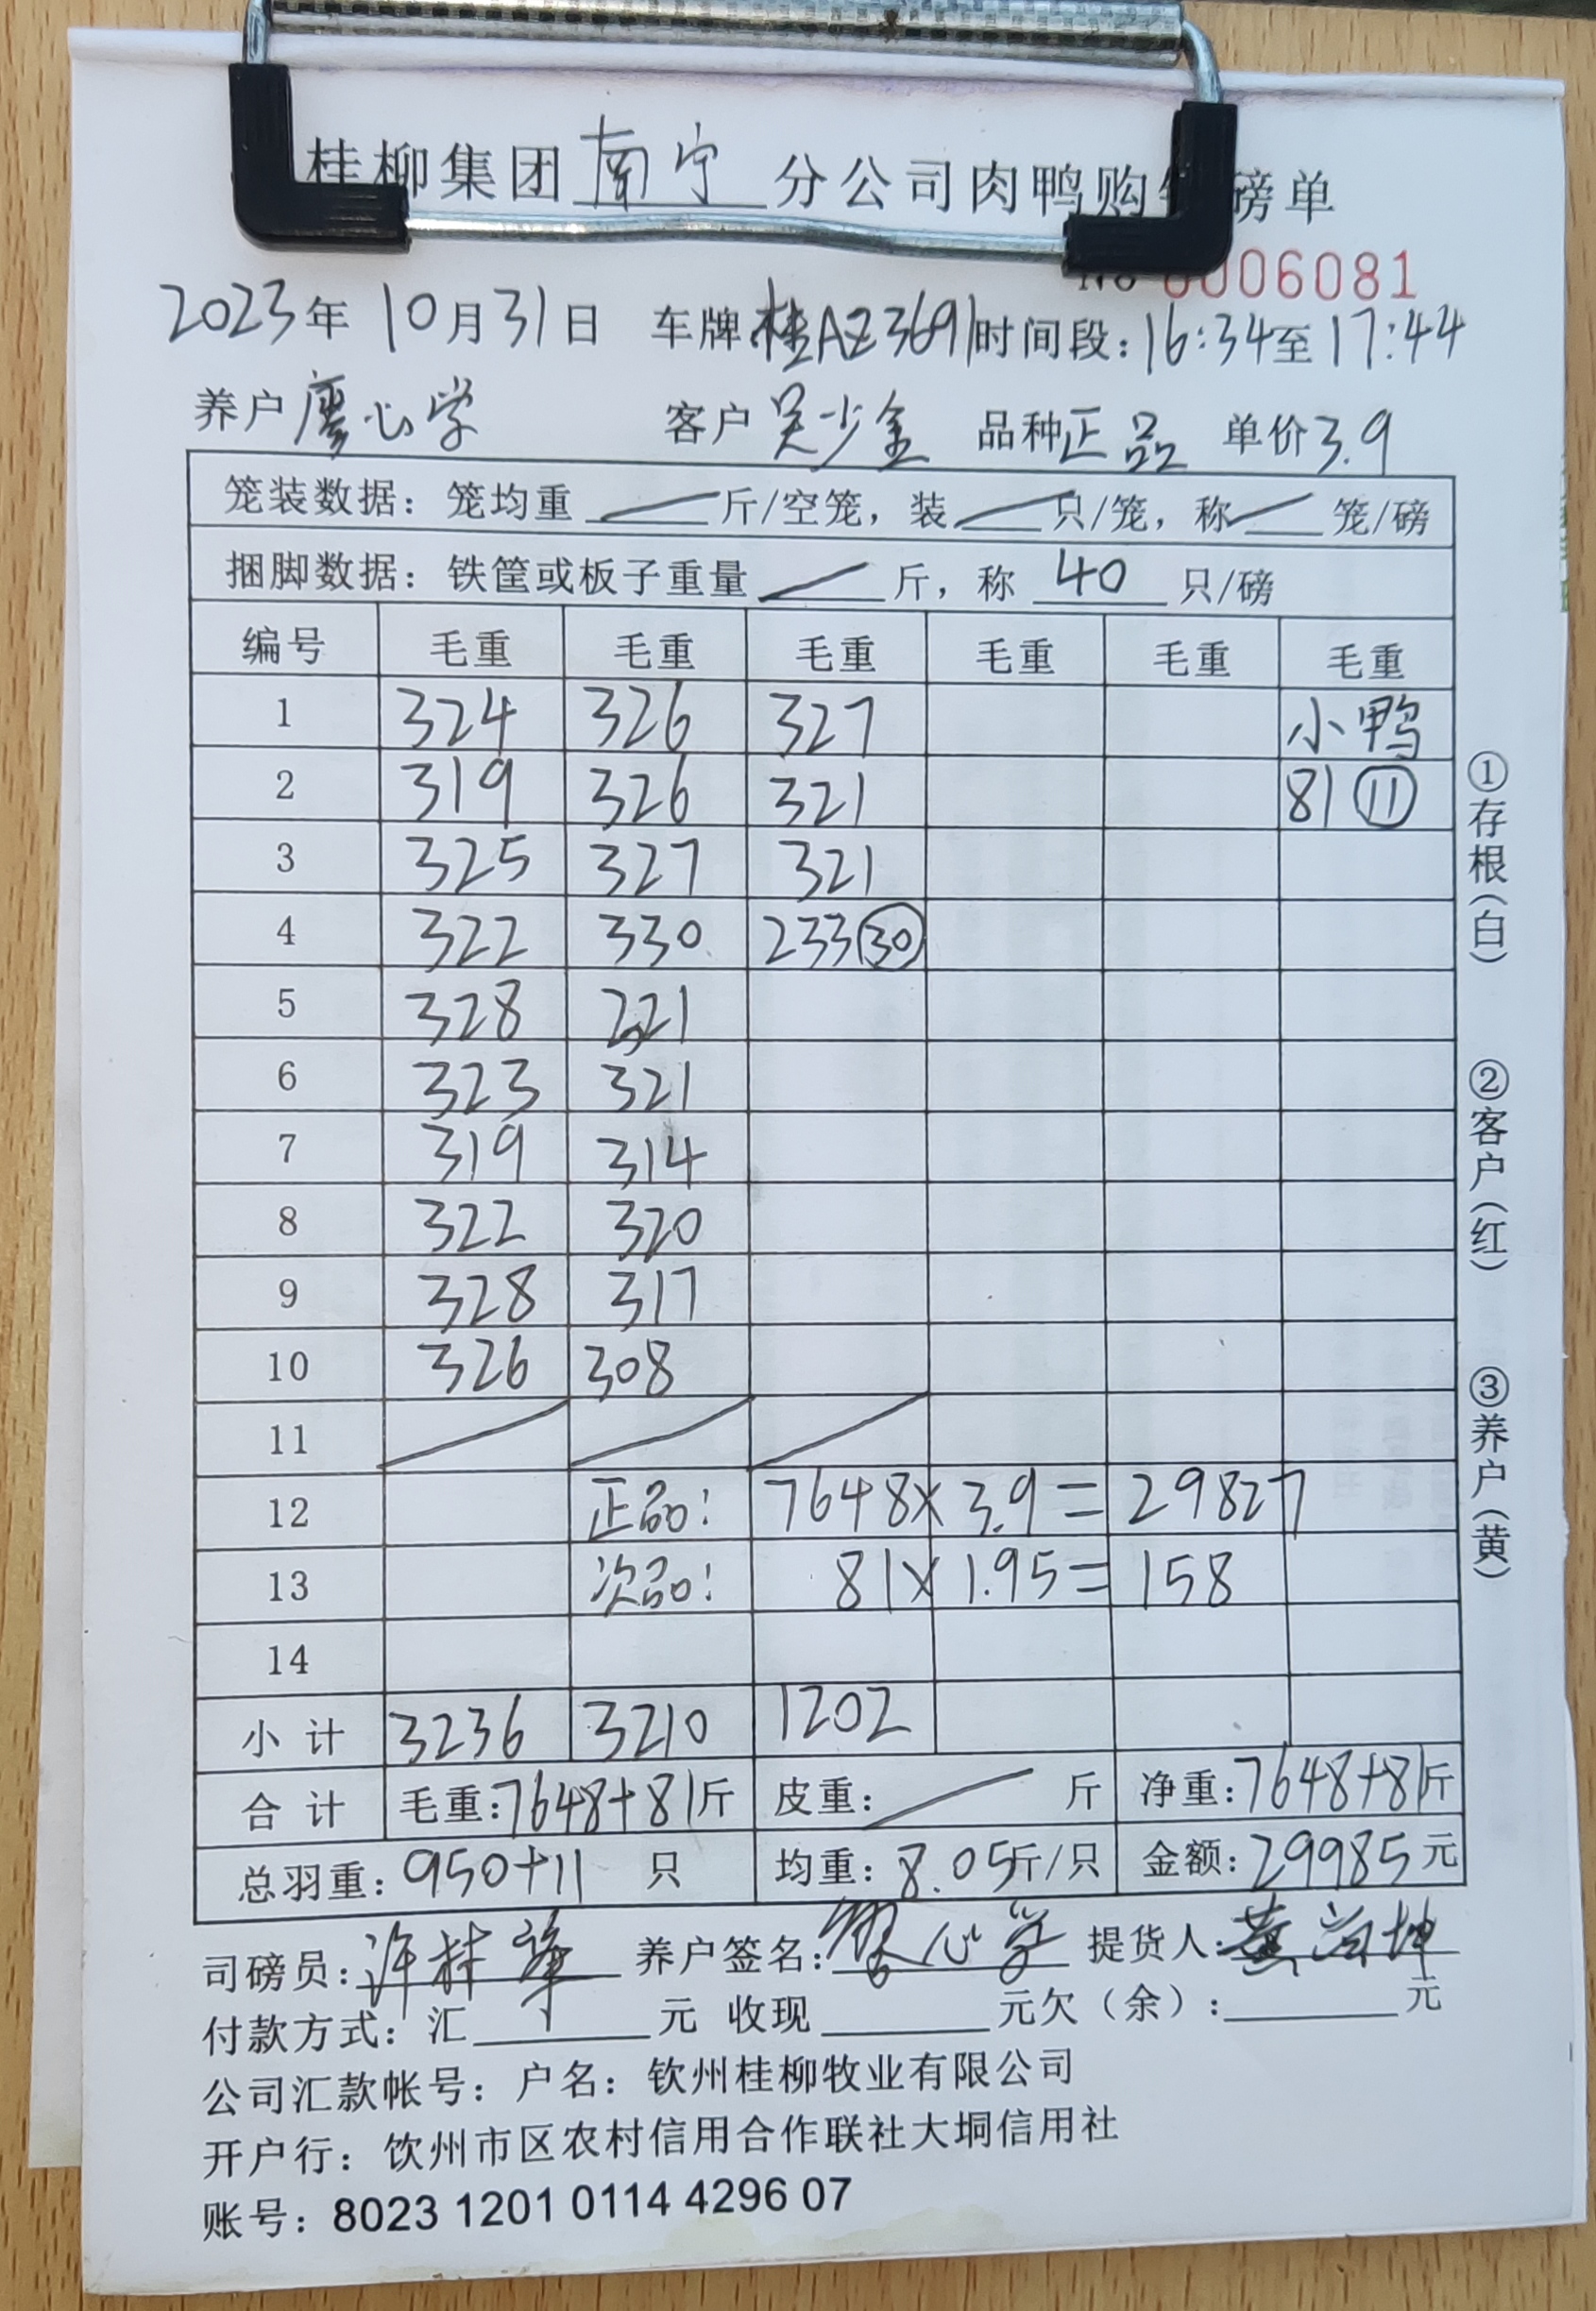 桂柳集团南宁分公司肉鸭购 磅单
No 0006081
2023年 10月31日 车牌桂AZ3691时间段:16:34至17:44
养户廖心学 客户吴少金 品种正品 单价3.9
笼装数据:笼均重 斤/空笼,装 只/笼,称 笼/磅
捆脚数据:铁筐或板子重量 斤,称 40 只/磅
编号 毛重 毛重 毛重 毛重 毛重 毛重
1 324 326 327 小鸭
2 319 326 321 81 ⑪
3 325 327 321
4 322 330 233㉚
5 328 321
6 323 321
7 319 314
8 322 320
9 328 317
10 326 308
11
12 正品: 7648× 3.9= 29827
13 次品: 81× 1.95= 158
14
小计 3236 3210 1202
合计 毛重:7648+81斤 皮重: 斤 净重:7648+81斤
总羽重:950+11 只 均重:8.05斤/只 金额:29985元
司磅员:许桂 养户签名:廖心学 提货人:黄
付款方式:汇 元 收现 元欠(余): 元
公司汇款帐号:户名:钦州桂柳牧业有限公司
开户行:饮州市区农村信用合作联社大垌信用社
账号:8023 1201 0114 4296 07
①存根(白)
②客户(红)
③养户(黄)